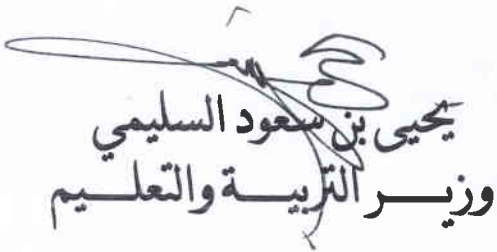 يحيى بن سعود السليمي
وزيــر التربيـــة والتعلـــيم